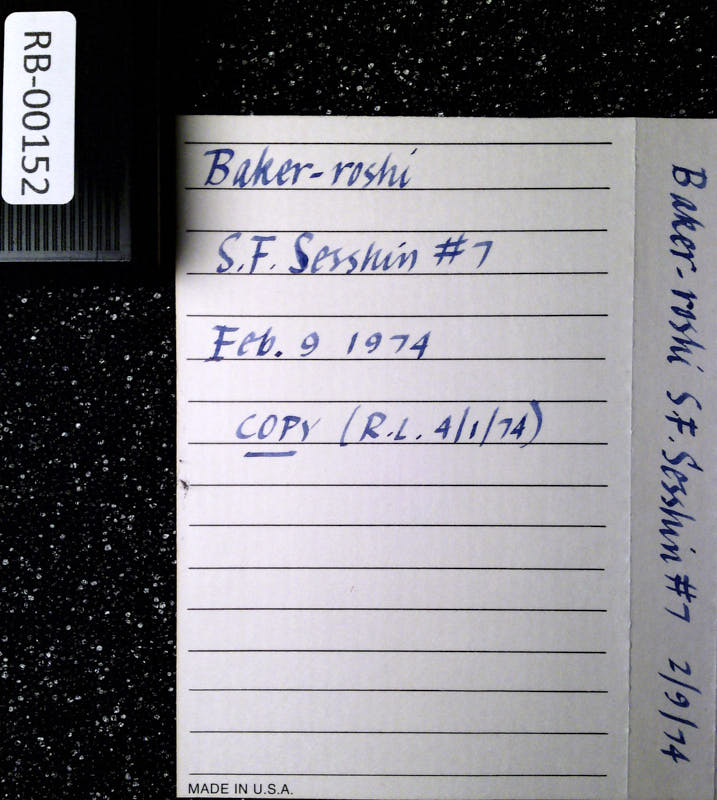 RB-00152
Baker-roshi
S.F. Sesshin #7
Feb. 9 1974
COPY (R.L. 4/1/74)
MADE IN U.S.A.
Baker-roshi S.F. Sesshin #7 2/9/74